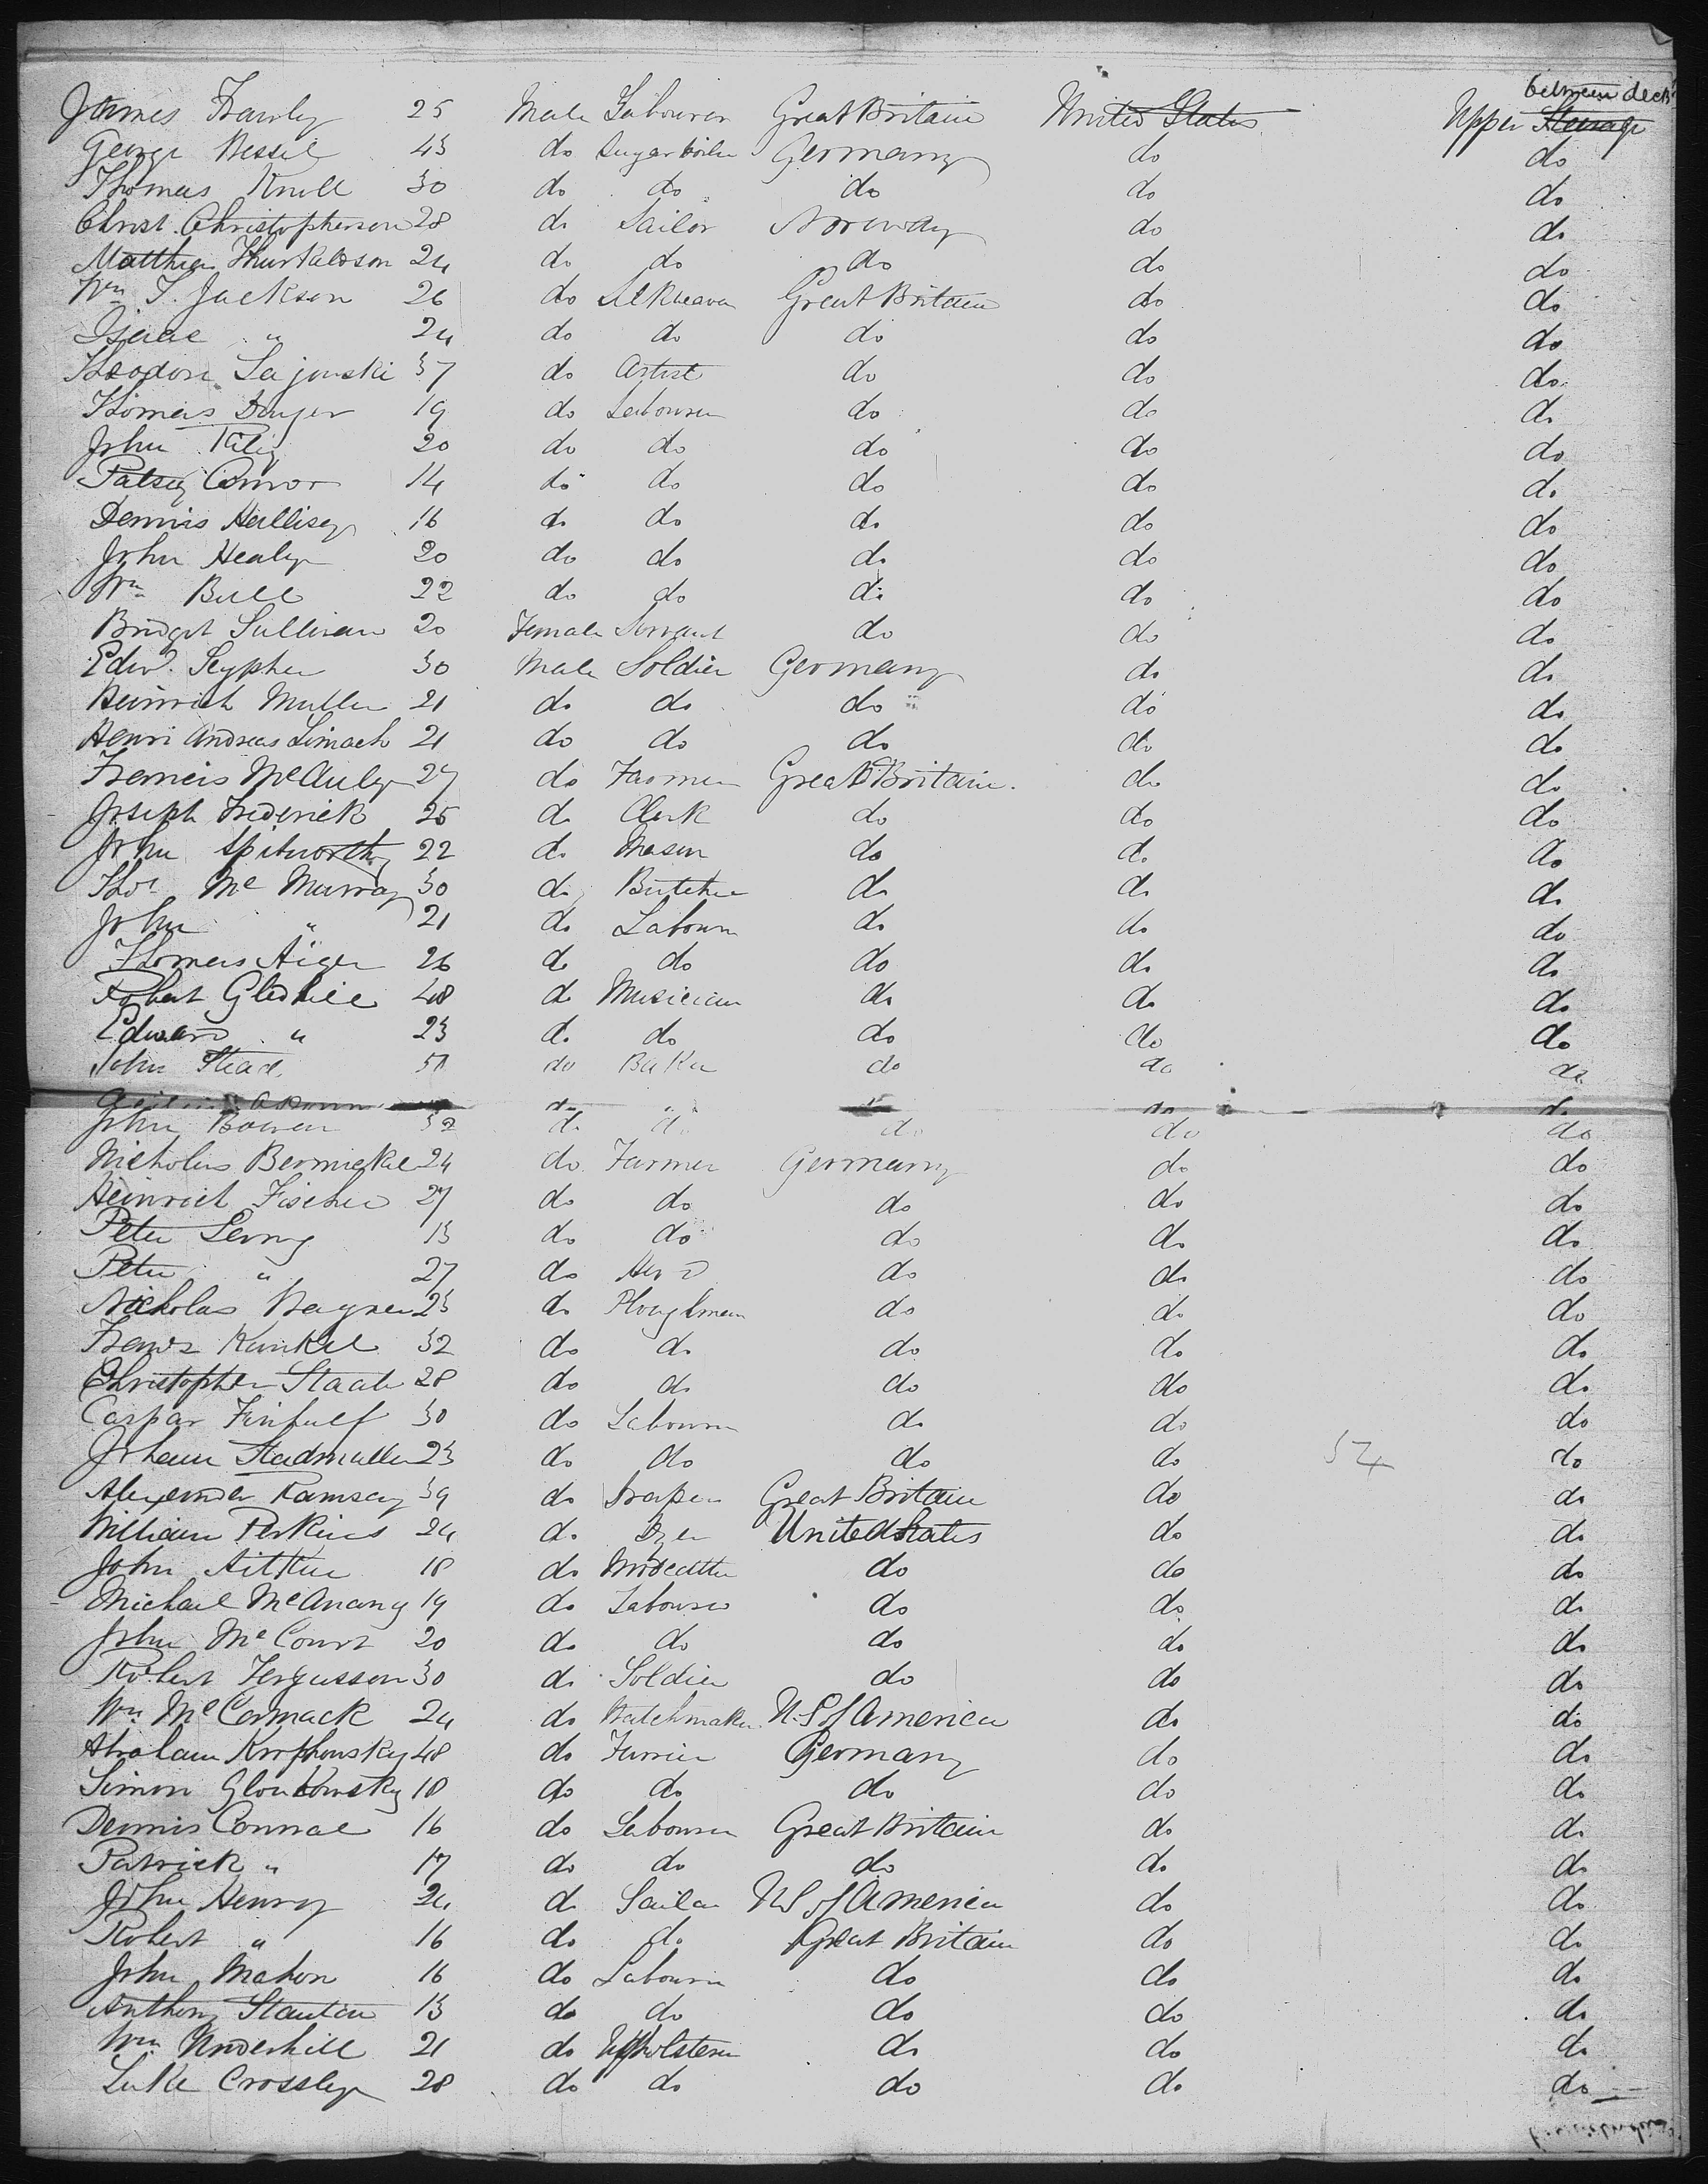 between decks
James Frawly 25 Male Labourer Great Britain United States Upper Steerage
George Bessel 43 do Sugar boiler Germany do do
Thomas Knill 30 do do do do do
Christ. Christopherson 28 do Sailor Norway do do
Matthia Thurkaldson 24 do do do do do
Wm T. Jackson 26 do Silkweaver Great Britain do do
Isaac " 24 do do do do do
Theodore Lajouski 37 do Artist do do do
Thomas Dwyer 19 do Labourer do do do
John Rily 20 do do do do do
Patsey Connor 14 do do do do do
Dennis Hallisey 16 do do do do do
John Healy 20 do do do do do
Wm Bull 22 do do do do do
Bridget Sullivan 20 Female Servant do do do
Edwd. Seypher 30 Male Soldier Germany do do
Heinrich Muller 21 do do do do do
Henri Andreas Limach 21 do do do do do
Francis McAuly 27 do Farmer Great Britain. do do
Joseph Frederick 25 do Clerk do do do
John Spitworthy 22 do Mason do do do
Thos Mc Murray 30 do Butcher do do do
John " 21 do Labourer do do do
Thomas 26 do do do do do
Robert Gledhill 48 do Musician do do do
Edward " 23 do do do do do
John Stead 51 do Baker do do do
do do do do
John Bowen 32 do do do do do
Nicholus Bernickel 24 do Farmer Germany do do
Heinrich Fischer 27 do do do do do
Peter Leony 13 do do do do do
Peter " 27 do Herd do do do
Nicholas Wagner 23 do Ploughman do do do
Franz Kunkel 32 do do do do do
Christopher Staab 28 do do do do do
Caspar Finhulf 30 do Labourer do do do
Johann Stadmuller 23 do do do do 54 do
Alexander Ramsay 39 do Draper Great Britain do do
William Perkins 24 do Dyer United States do do
John Aitken 18 do Woodcutter do do do
Michael McAnany 19 do Labourer do do do
John McCourt 20 do do do do do
Robert Fergusson 30 do Soldier do do do
Wm McCormack 24 do Watchmaker U.S of America do do
Abraham Krophousky 48 do Furrier Germany do do
Simon Gloukowsky 18 do do do do do
Dennis Connal 16 do Labourer Great Britain do do
Patrick " 17 do do do do do
John Henry 24 do Sailor U S of America do do
Robert " 16 do do Great Britain do do
John Mahon 16 do Labourer do do do
Anthony Stanton 13 do do do do do
Wm Underhill 21 do Upholsterer do do do
Luke Crossley 28 do do do do do